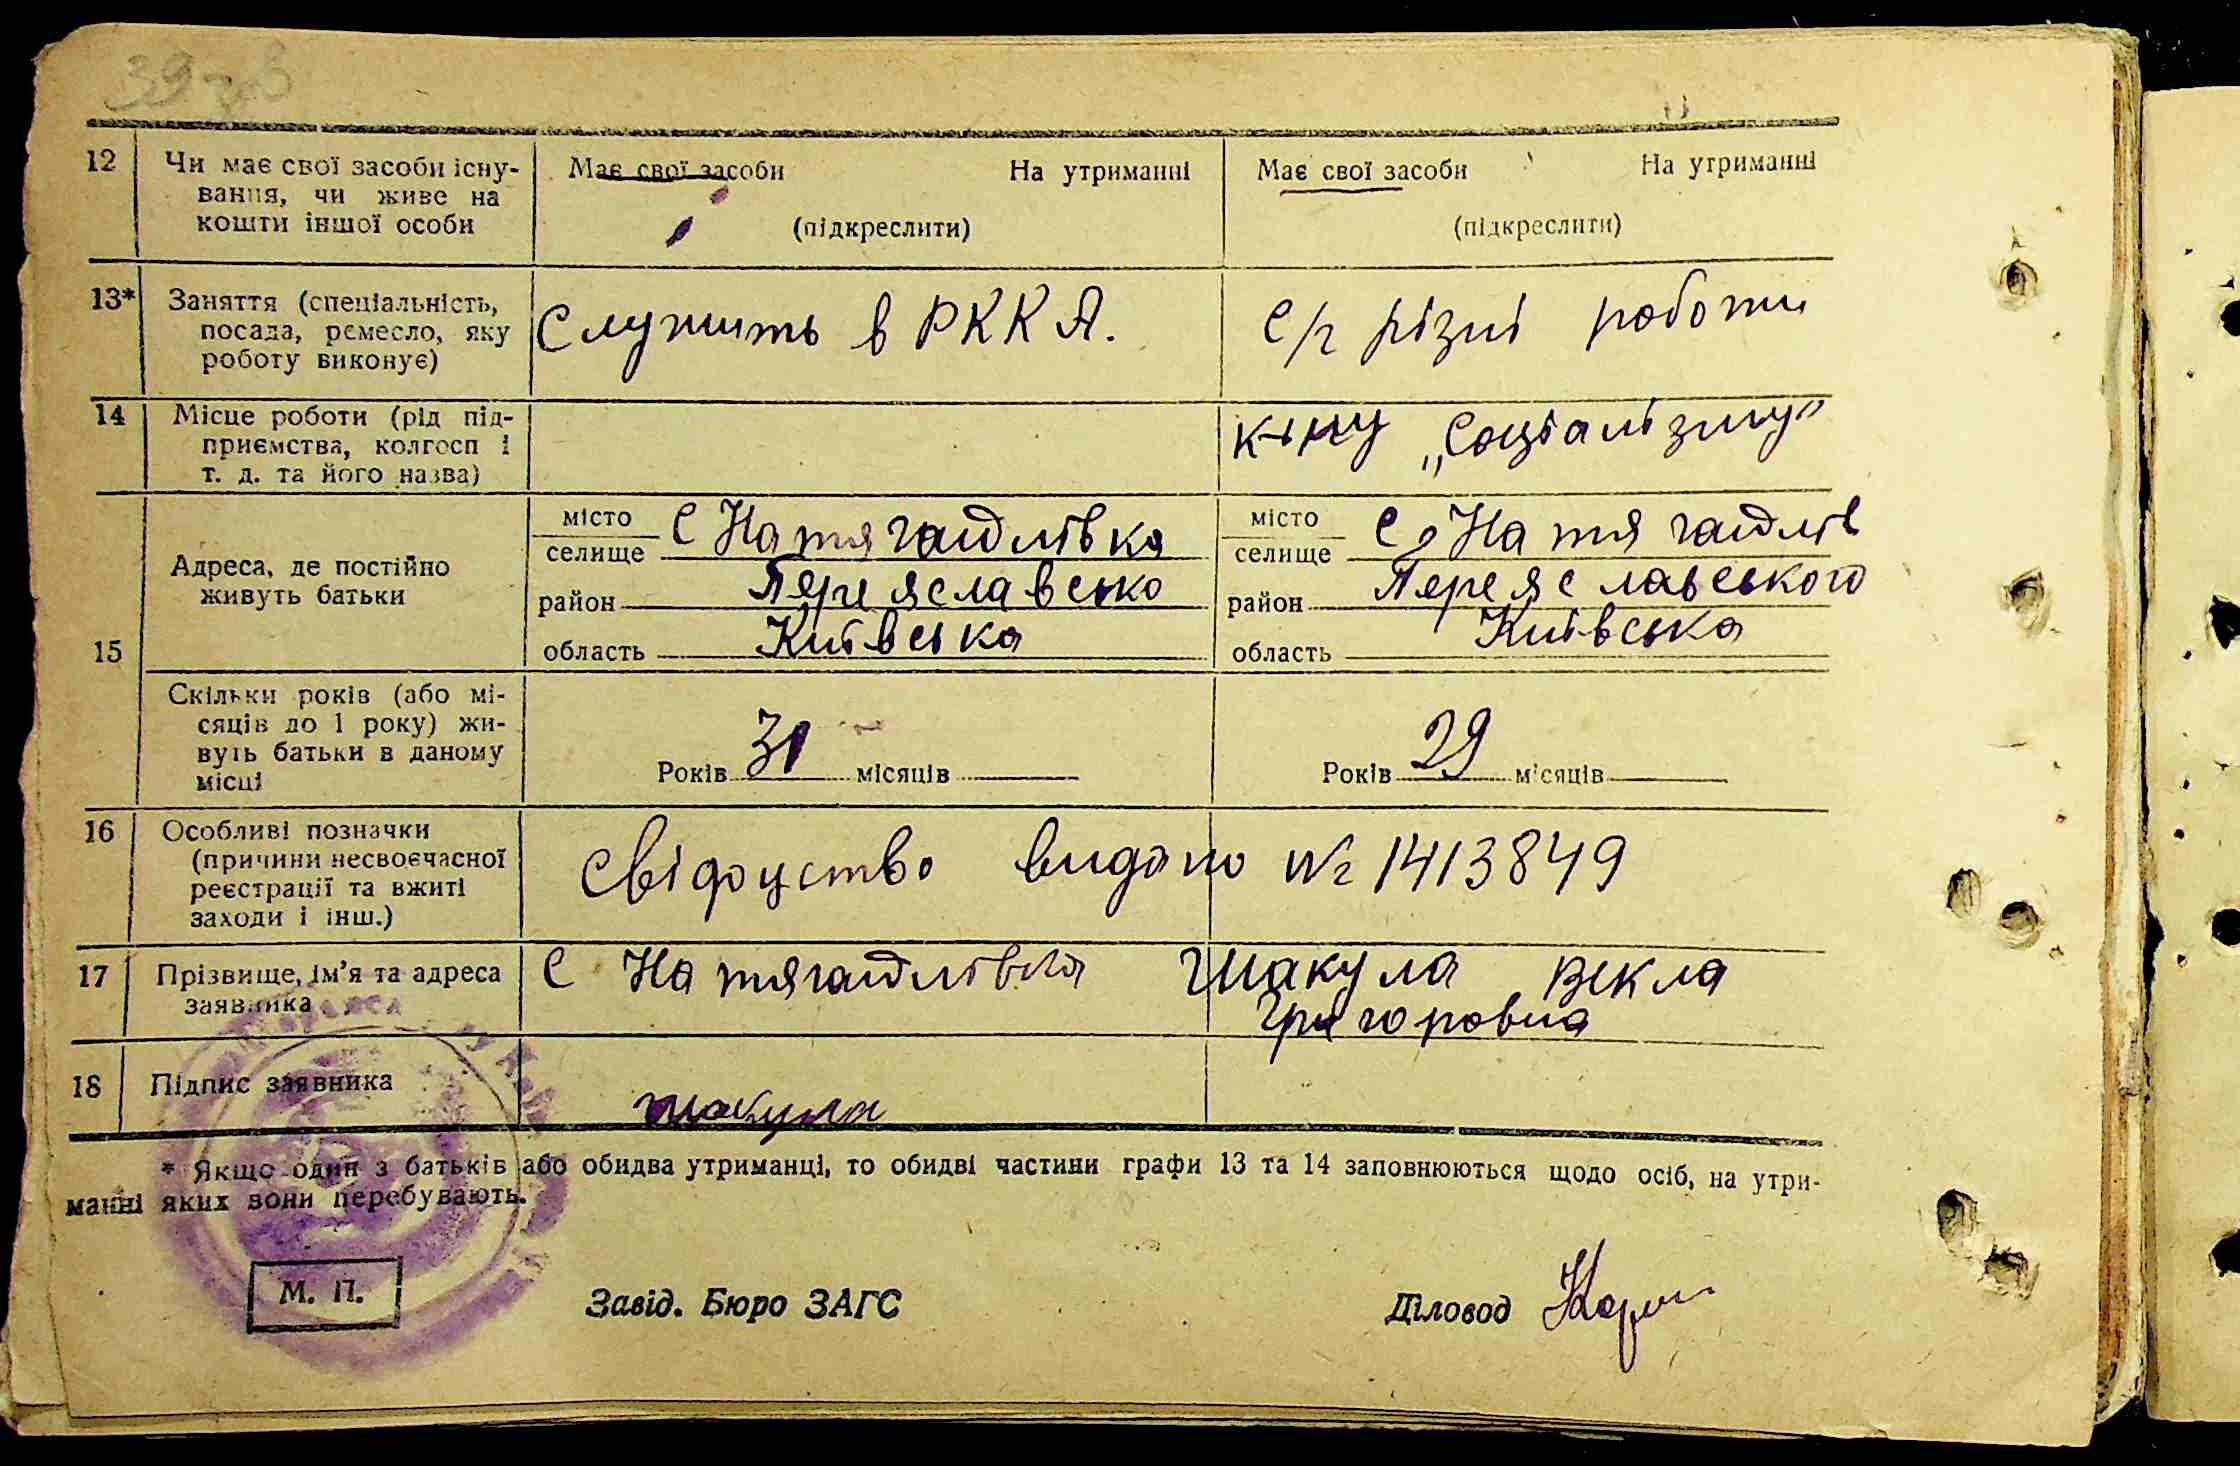 39 зв
12 Чи має свої засоби існу-
вання, чи живе на
кошти іншої особи
Має свої засоби На утриманні
(підкреслити)
Має свої засоби На утриманні
(підкреслити)
13* Заняття (спеціальність,
посада, ремесло, яку
роботу виконує)
Служить в РККА.
с/г різні роботи
14 Місце роботи (рід під-
приємства, колгосп і
т. д. та його назва)
„Соціалізму"
15 Адреса, де постійно
живуть батьки
місто
селище С Натягайлівка
район Переяславсько
область Київська
місто
селище С. Натягайлів
район Переяславського
область Київська
Скільки років (або мі-
сяців до 1 року) жи-
вуть батьки в даному
місці
Років 31 місяців
Років 29 місяців
16 Особливі позначки
(причини несвоєчасної
реєстрації та вжиті
заходи і інш.)
Свідоцтво видано № 1413849
17 Прізвище, ім'я та адреса
заявника
С Натягайлівка Шакула Векла
Григоровна
18 Підпис заявника
Шакула
* Якщо один з батьків або обидва утриманці, то обидві частини графи 13 та 14 заповнюються щодо осіб, на утри-
манні яких вони перебувають.
М. П.
Завід. Бюро ЗАГС
Діловод